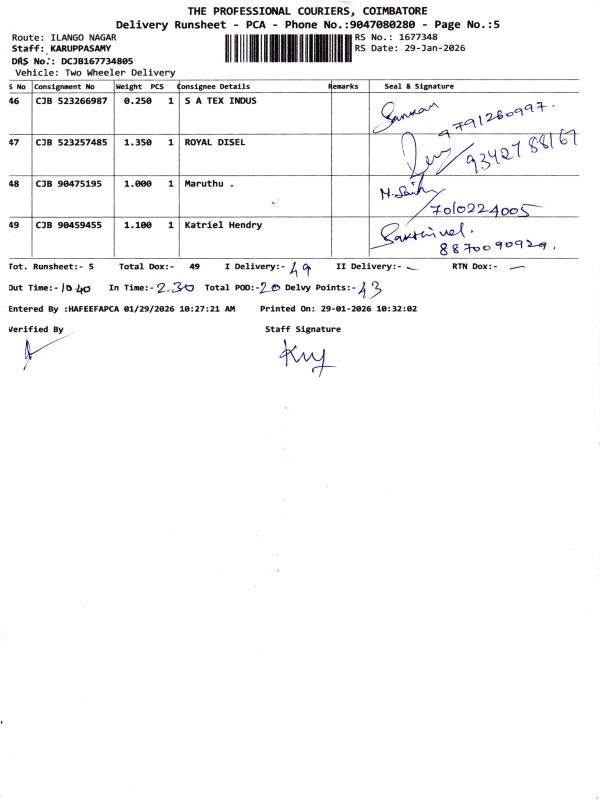 THE PROFESSIONAL COURIERS, COIMBATORE
Delivery Runsheet - PCA - Phone No.:9047080280 - Page No.:5
Route: ILANGO NAGAR RS No.: 1677348
Staff: KARUPPASAMY RS Date: 29-Jan-2026
DRS No.: DCJB167734805
Vehicle: Two Wheeler Delivery
S No Consignment No Weight PCS Consignee Details Remarks Seal & Signature
46 CJB 523266987 0.250 1 S A TEX INDUS
9791260997.
47 CJB 523257485 1.350 1 ROYAL DISEL
9342788167
48 CJB 90475195 1.000 1 Maruthu .
7010224005
49 CJB 90459455 1.100 1 Katriel Hendry Sakthivel.
8870090929.
Tot. Runsheet:- 5 Total Dox:- 49 I Delivery:- 49 II Delivery:- - RTN Dox:- -
Out Time:- 10 40 In Time:- 2.30 Total POD:- 20 Delvy Points:- 43
Entered By :HAFEEFAPCA 01/29/2026 10:27:21 AM Printed On: 29-01-2026 10:32:02
Verified By Staff Signature